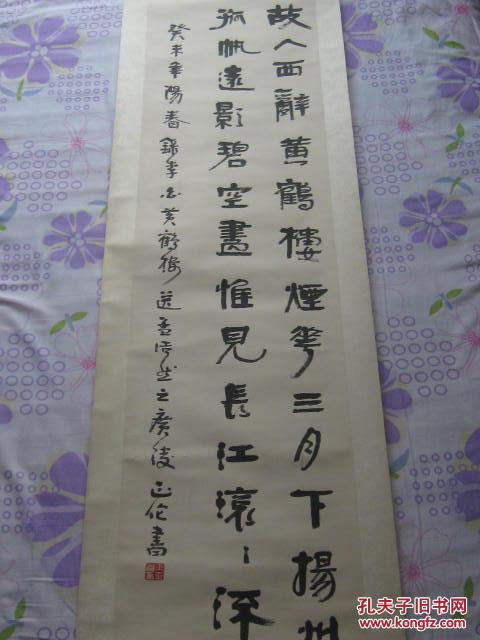 故人西辭黄鶴樓煙花三月下揚州
孤帆遠影碧空盡惟見長江滾〻流
癸未年陽春錄李白黄鶴樓送孟浩然之廣陵 正伦書
孔夫子旧书网
www.kongfz.com